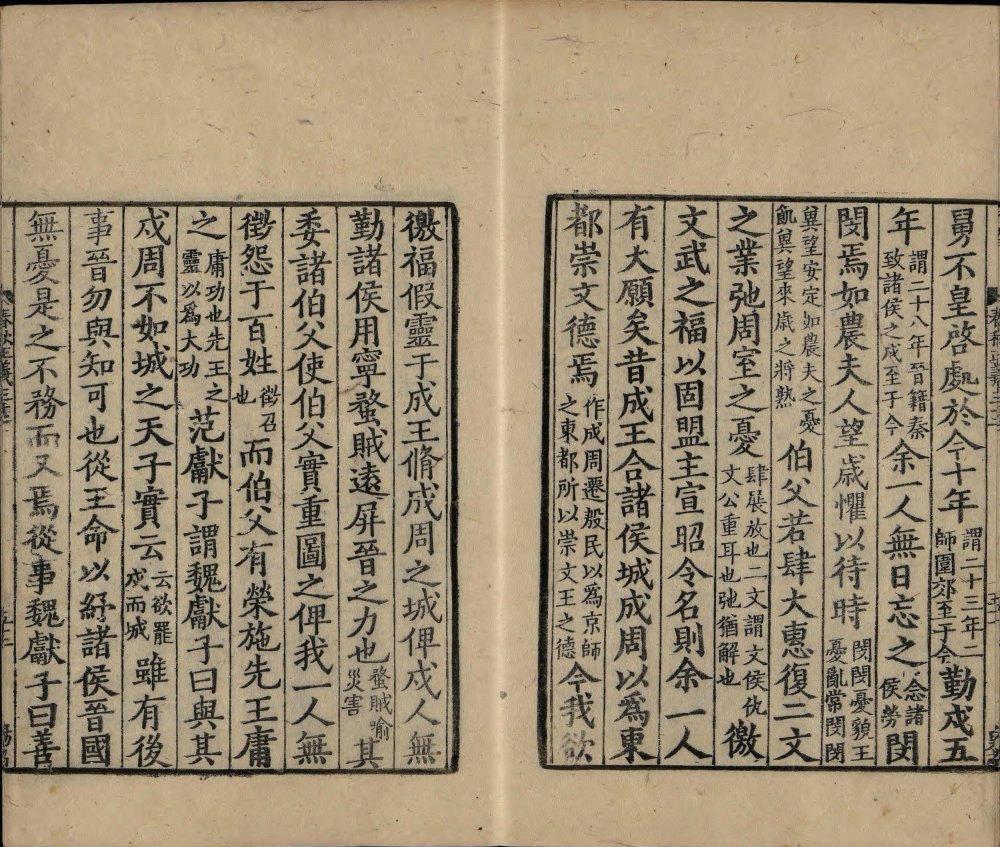 舅不皇啓處於今十年謂二十三年二師圍郊至于今勤戍五
年謂二十八年晉籍秦致諸侯之戍至于今余一人無日忘之念諸侯勞閔
閔焉如農夫人望歲懼以待時閔閔憂貌王憂亂常閔閔
冀望安定如農夫之憂飢冀望來歲之將熟伯父若肆大惠復二文
之業弛周室之憂肆展放也二文謂文侯仇文公重耳也弛猶解也徼
文武之福以固盟主宣昭令名則余一人
有大願矣昔成王合諸侯城成周以為東
都崇文德焉作成周遷殷民以為京師之東都所以崇文王之德今我欲
徼福假靈于成王脩成周之城俾戍人無
勤諸侯用寧蝥賊遠屏晉之力也蝥賊喻災害其
委諸伯父使伯父實重圖之俾我一人無
徵怨于百姓徵召也而伯父有榮施先王庸
之庸功也先王之靈以為大功范獻子謂魏獻子曰與其
戍周不如城之天子實云云欲罷戍而城雖有後
事晉勿與知可也從王命以紓諸侯晉國
無憂是之不務而又焉從事魏獻子曰善